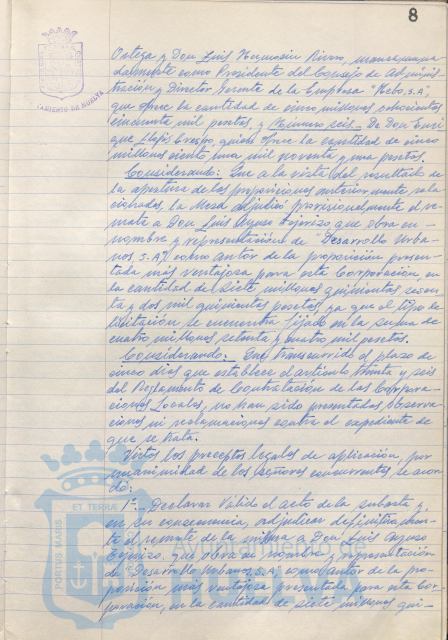 8
AYUNTAMIENTO DE HUELVA
Ortega y Don Luis Hermosin Rivero, mancomuna
damente como Presidente del Consejo de Adminis
tración y Director Gerente de la Empresa "Hebo, S.A",
que ofrece la cantidad de cinco millones ochocientas
cincuenta mil pesetas y Número seis.- De Don Enri
que Llopis Crespo, quien ofrece la cantidad de cinco
millones ciento una mil noventa y una pesetas.
Considerando: Que a la vista del resultado de
la apertura de las proposiciones anteriormente rela
cionadas, la Mesa adjudicó provisionalmente el re-
mate a Don Luis Ayuso que obra en
nombre y representación de "Desarrollo Urba-
nos S.A", como autor de la proposición presen-
tada más ventajosa para esta Corporación en
la cantidad de siete millones quinientas sesen
ta y dos mil quinientas pesetas, ya que el tipo de
licitación se encuentra fijado en la suma de
cuatro millones setenta y cuatro mil pesetas.
Considerando: Que transcurrido el plazo de
cinco días que establece el artículo treinta y seis
del Reglamento de Contratación de las Corpora-
ciones Locales, no han sido presentadas observa
ciones ni reclamaciones contra el expediente de
que se trata.
Vistos los preceptos legales de aplicación, por
unanimidad de los señores concurrentes, se acor
dó:
1º.- Declarar válido el acto de la subasta y,
en su consecuencia, adjudicar definitivamen
te el remate de la misma a Don Luis Ayuso
que obra en nombre y representación
de "Desarrollo Urbanos S.A", como autor de la pro-
posición más ventajosa presentada para esta Cor-
poración, en la cantidad de siete millones qui-
PORTUS MARIS
ET TERRAE